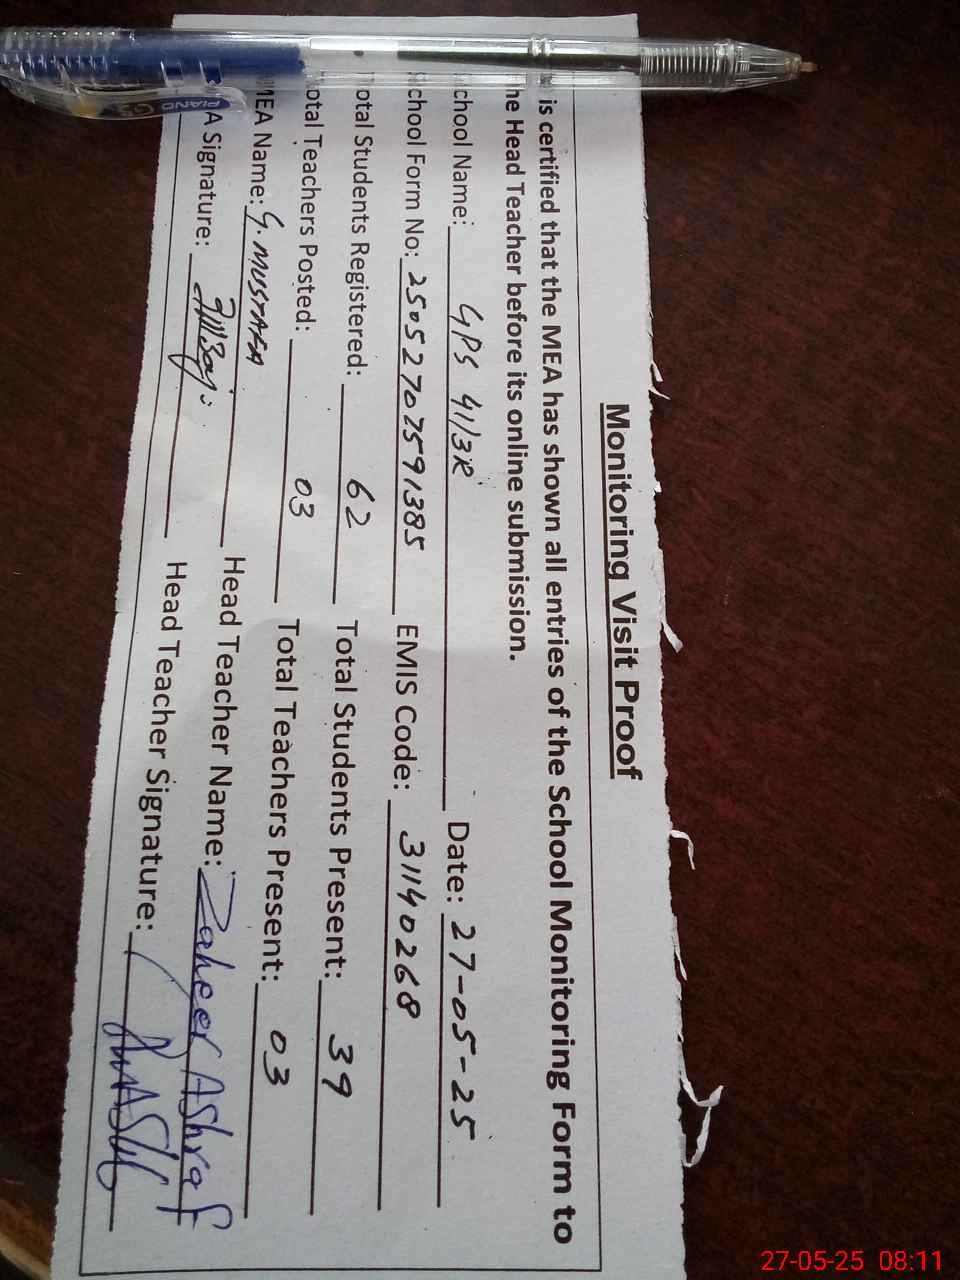 Monitoring Visit Proof
is certified that the MEA has shown all entries of the School Monitoring Form to
he Head Teacher before its online submission.
chool Name: GPS 41/3R Date: 27-05-25
chool Form No: 25052702591385 EMIS Code: 31140268
otal Students Registered: 62 Total Students Present: 39
otal Teachers Posted: 03 Total Teachers Present: 03
MEA Name: G. MUSTAFA Head Teacher Name: Zaheer AShraf
A Signature: Head Teacher Signature:
PIANO
27-05-25 08:11